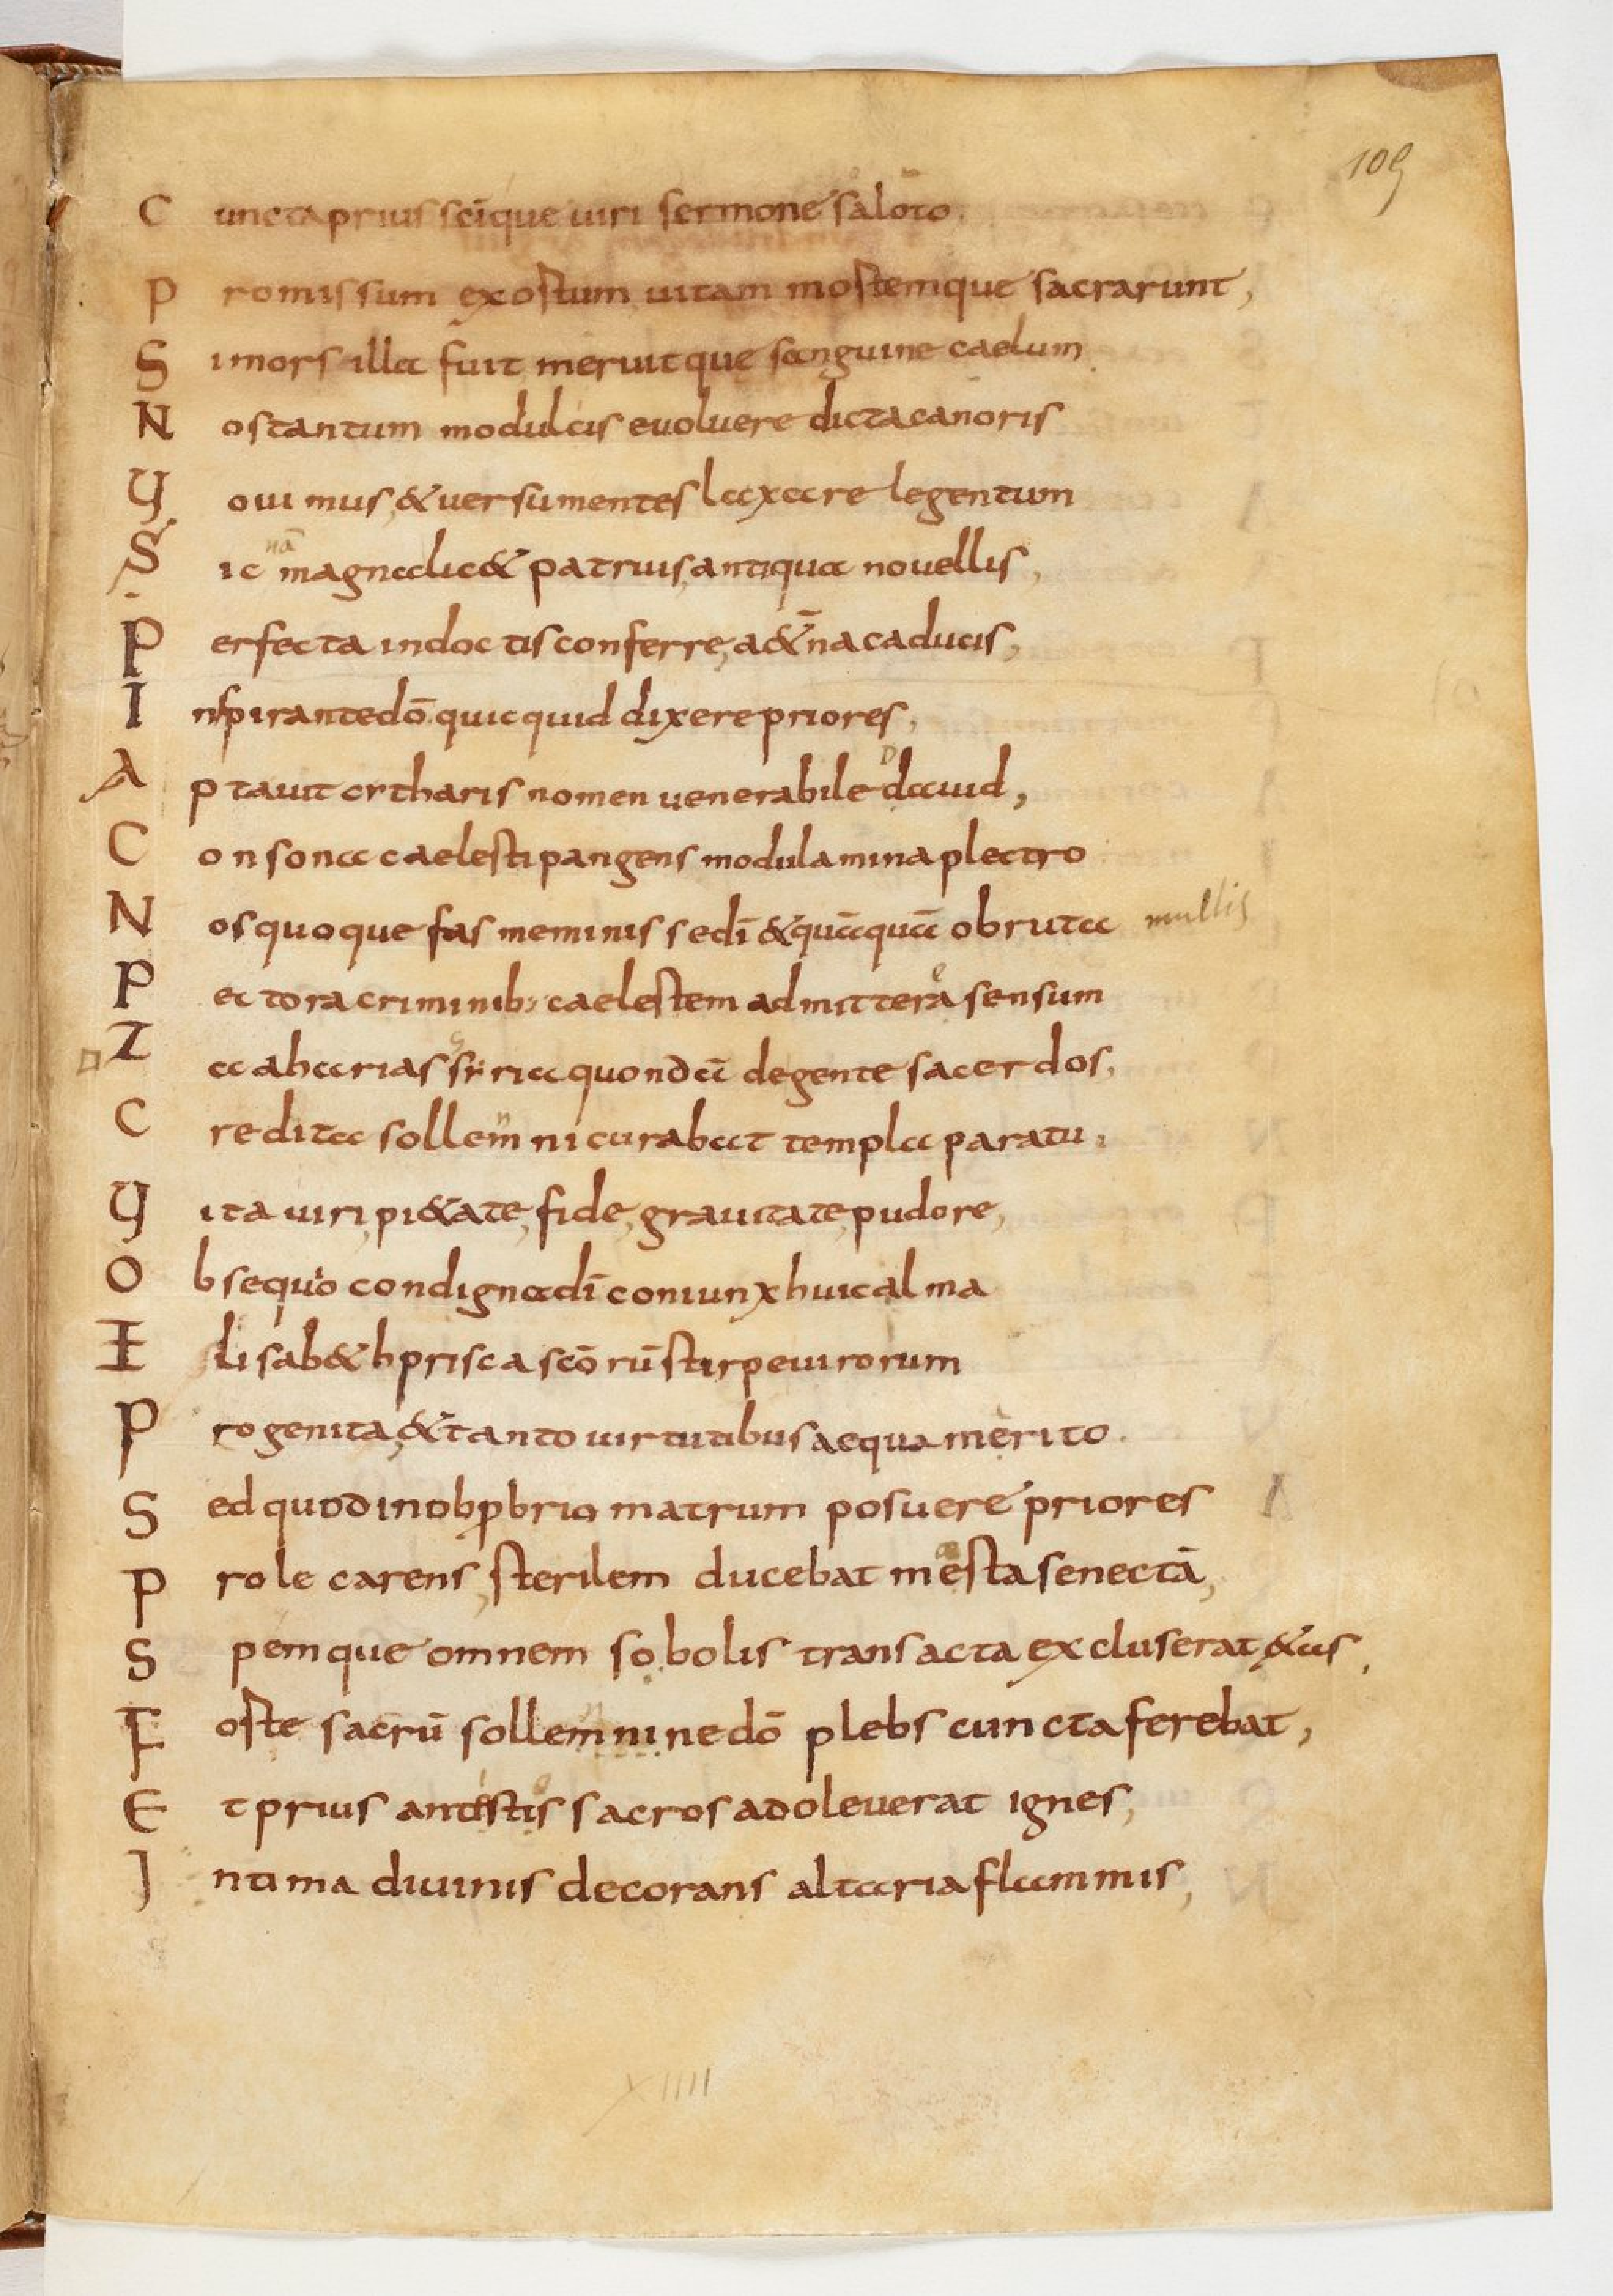 109
C uncta prius scīque uiri sermone saloto.
P romissum exostum uitam mostemque sacrarunt,
S i mors illa fuit meruitque sanguine caelum
N os tantum modulcis euoluere dicta canoris
U ouimus, & uersu mentes laxare legentum
S ic nā magna lic& patruis, antiqua nouellis,
P erfecta indoctis conferre, a&̄na caducis,
I nspirante dō quicquid dixere priores,
A ptauit citharis nomen uenerabile dauid,
C onsona caelesti pangens modulamina plectro
N os quoque fas meminisse dī & quāquā obruta mullis
P ectora criminib; caelestem admittera sensum
Z acaharias siria quondā degente sacerdos,
C redita sollemni curabat templa paratu,
U ita uiri, pi&ate, fide, grauitate, pudore,
O bsequio condigna dī coniunx huic alma
E lisab&h prisca scōrū stirpe uirorum
P rogenita, & tanto uirtutibus aequa merito.
S ed quod in obprobrio matrum posuere priores
P role carens, sterilem ducebat mesta senectā,
S pemque omnem sobolis transacta excluserat &as,
F oste sacrū sollemnine dō plebs cuncta ferebat,
E t prius antestis sacros adoleuerat ignes,
I ntima diuinis decorans altaria flammis,
XIIII